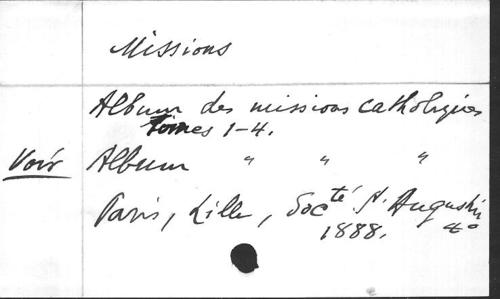 Missions
Album des missions catholiques
tomes 1-4.
Voir Album " " "
Paris, Lille, Socté St. Augustin
1888. 4°